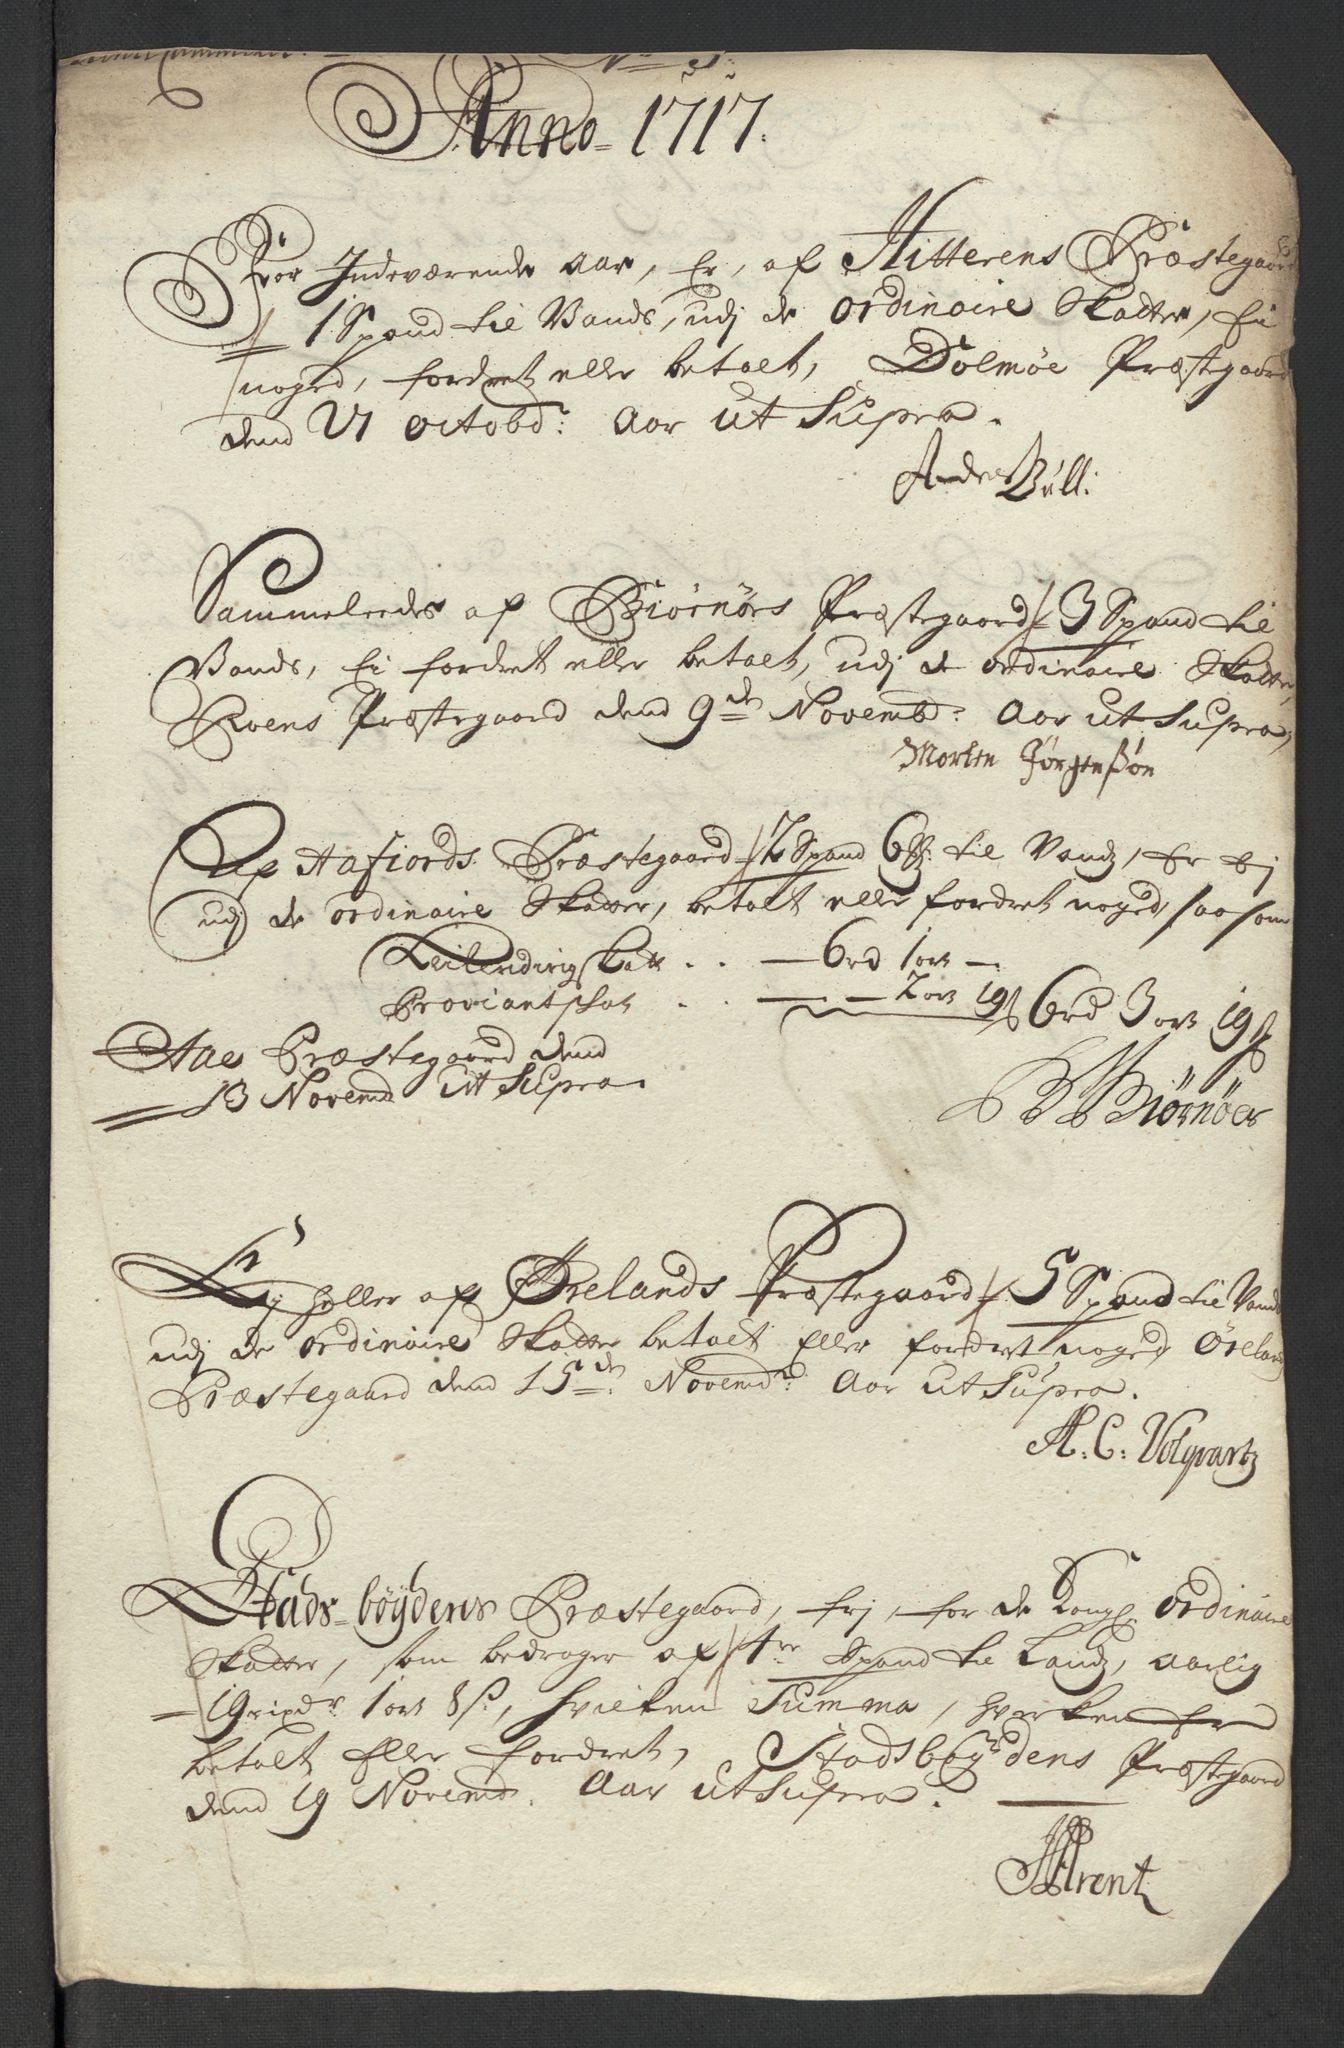 Anno 1717.
For Indeværende Aar, Er, af Hitterens Præstegaard
1 Spand til Bunds, udj de ordinaire Skatter, Ei
noged, fordret eller betalt, Dolmøe Præstgaard
dend 21 octobd: Aar ut Supra.
Anders Bull:
Sammeledes af Biørnørs Præstegaard 3 Spand til
Bunds, Ei fordret eller betalt, udj de ordinaire Skatter,
Roens Præstegaard dend 9de Novembd: Aar ut Supra,
Morten Jørgensøn
Af Aafiords Præstegaard 2 Spand 6 til Bunds, Er Ej
udj de ordinaire Skatter, betalt eller fordret noged, saasom
Leilendingskatt . . — 6rd 1ort —
Proviantskat . . — — 2ort 19s 6rd 3ort 19s
Aaes Præstegaard dend
13 Novemd ut Supra.
Biørnøer
Ej heller af Ørelands Præstegaard 5 Spand til Bunds
udj de ordinaire Skatter betalt Eller fordret noged, Øreland
Præstegaard dend 15de Novemdr: Aar ut Supra.
H. C: Volqvartz
Stads-bøydens Præstegaard, frj, for de Kongl. ordinaire
Skatter, som bedrager af 4re Spand til Bunds, aarlig
— 19 rixdr 1 ort 8s, hvilken Summa, hverken Er
betalt Eller fordret, Stadsbøydens Præstgaard
dend 19 Novemd. Aar ut Supra.
Arentz